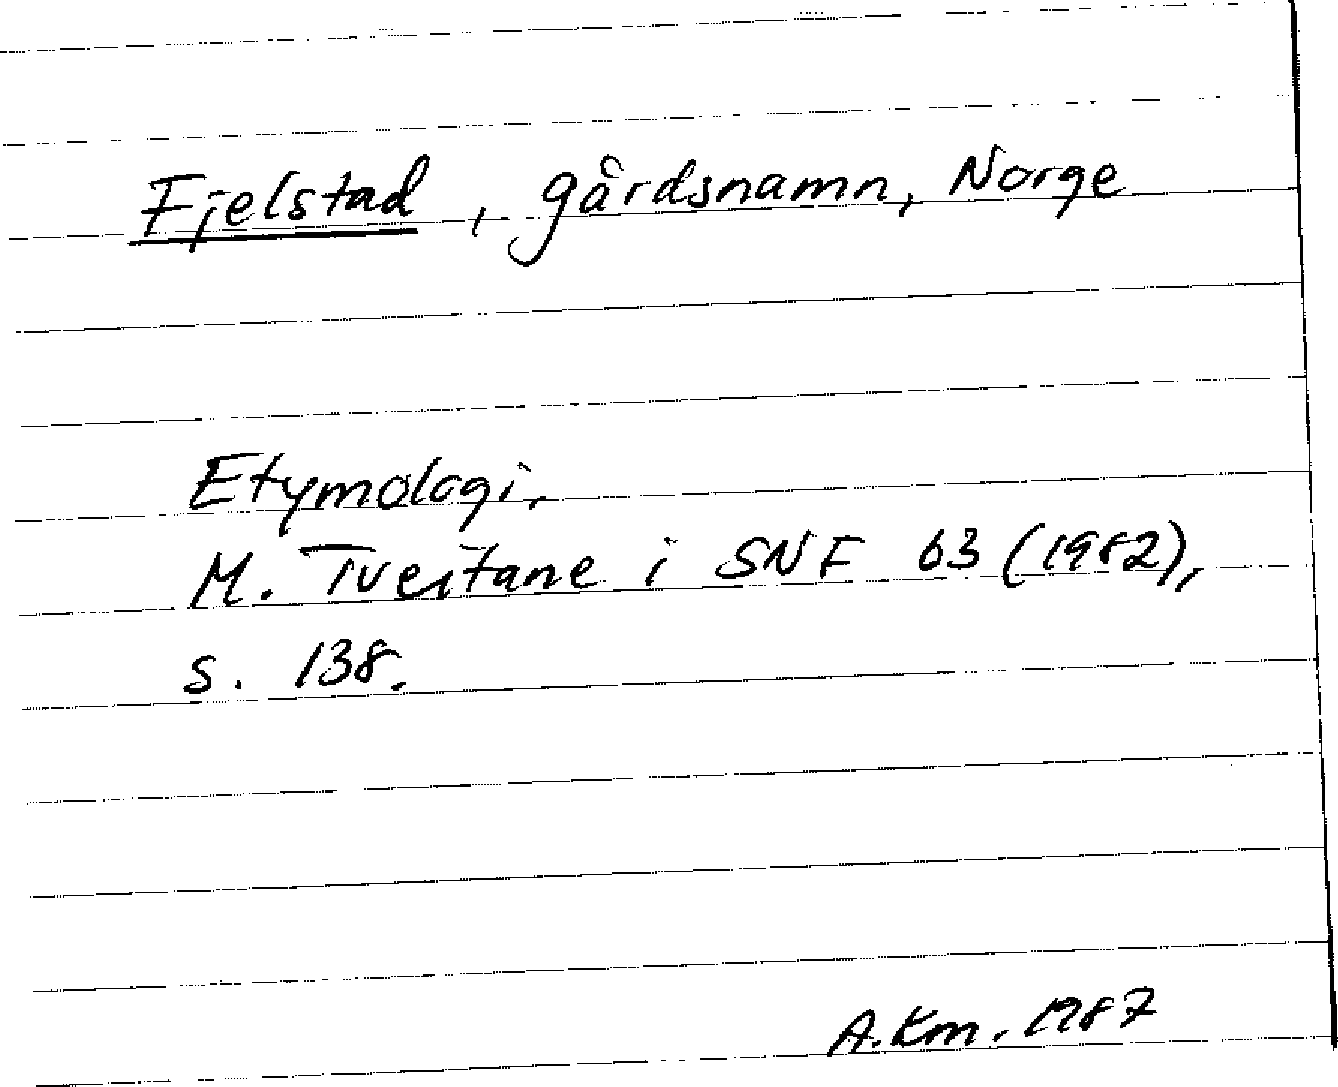 Fjelstad, gårdsnamn, Norge
Etymologi,
M. Tveitane i SNF 63 (1982),
s. 138.
A.Km. 1987